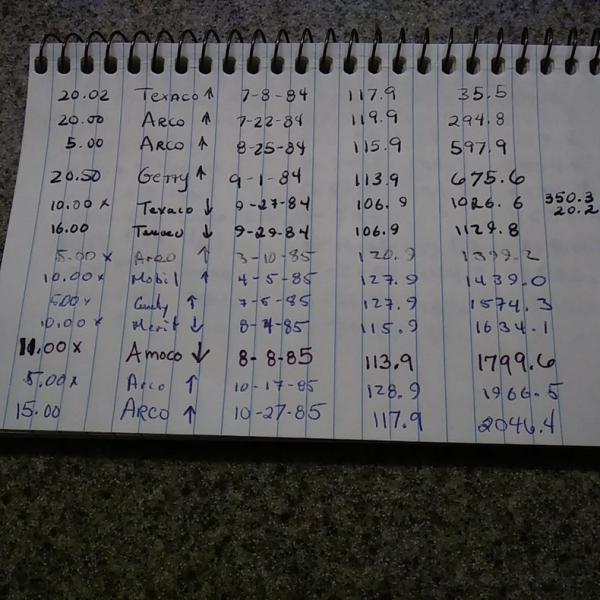 20.02 Texaco ↑ 7-8-84 117.9 35.5
20.00 Arco ↑ 7-22-84 119.9 294.8
5.00 Arco ↑ 8-25-84 115.9 597.9
20.50 Getty ↑ 9-1-84 113.9 675.6
10.00 x Texaco ↓ 9-27-84 106.9 1026.6 350.3
20.2
16.00 Texaco ↓ 9-29-84 106.9 1129.8
5.00 x Arco ↑ 3-10-85 120.9 1399.2
10.00 x Mobil ↑ 4-5-85 127.9 1439.0
5.00 x Getty ↑ 7-5-85 127.9 1574.3
10.00 x Merit ↓ 8-4-85 115.9 1634.1
11.00 x Amoco ↓ 8-8-85 113.9 1799.6
5.00 x Arco ↑ 10-17-85 128.9 1966.5
15.00 ARCO ↑ 10-27-85 117.9 2046.4